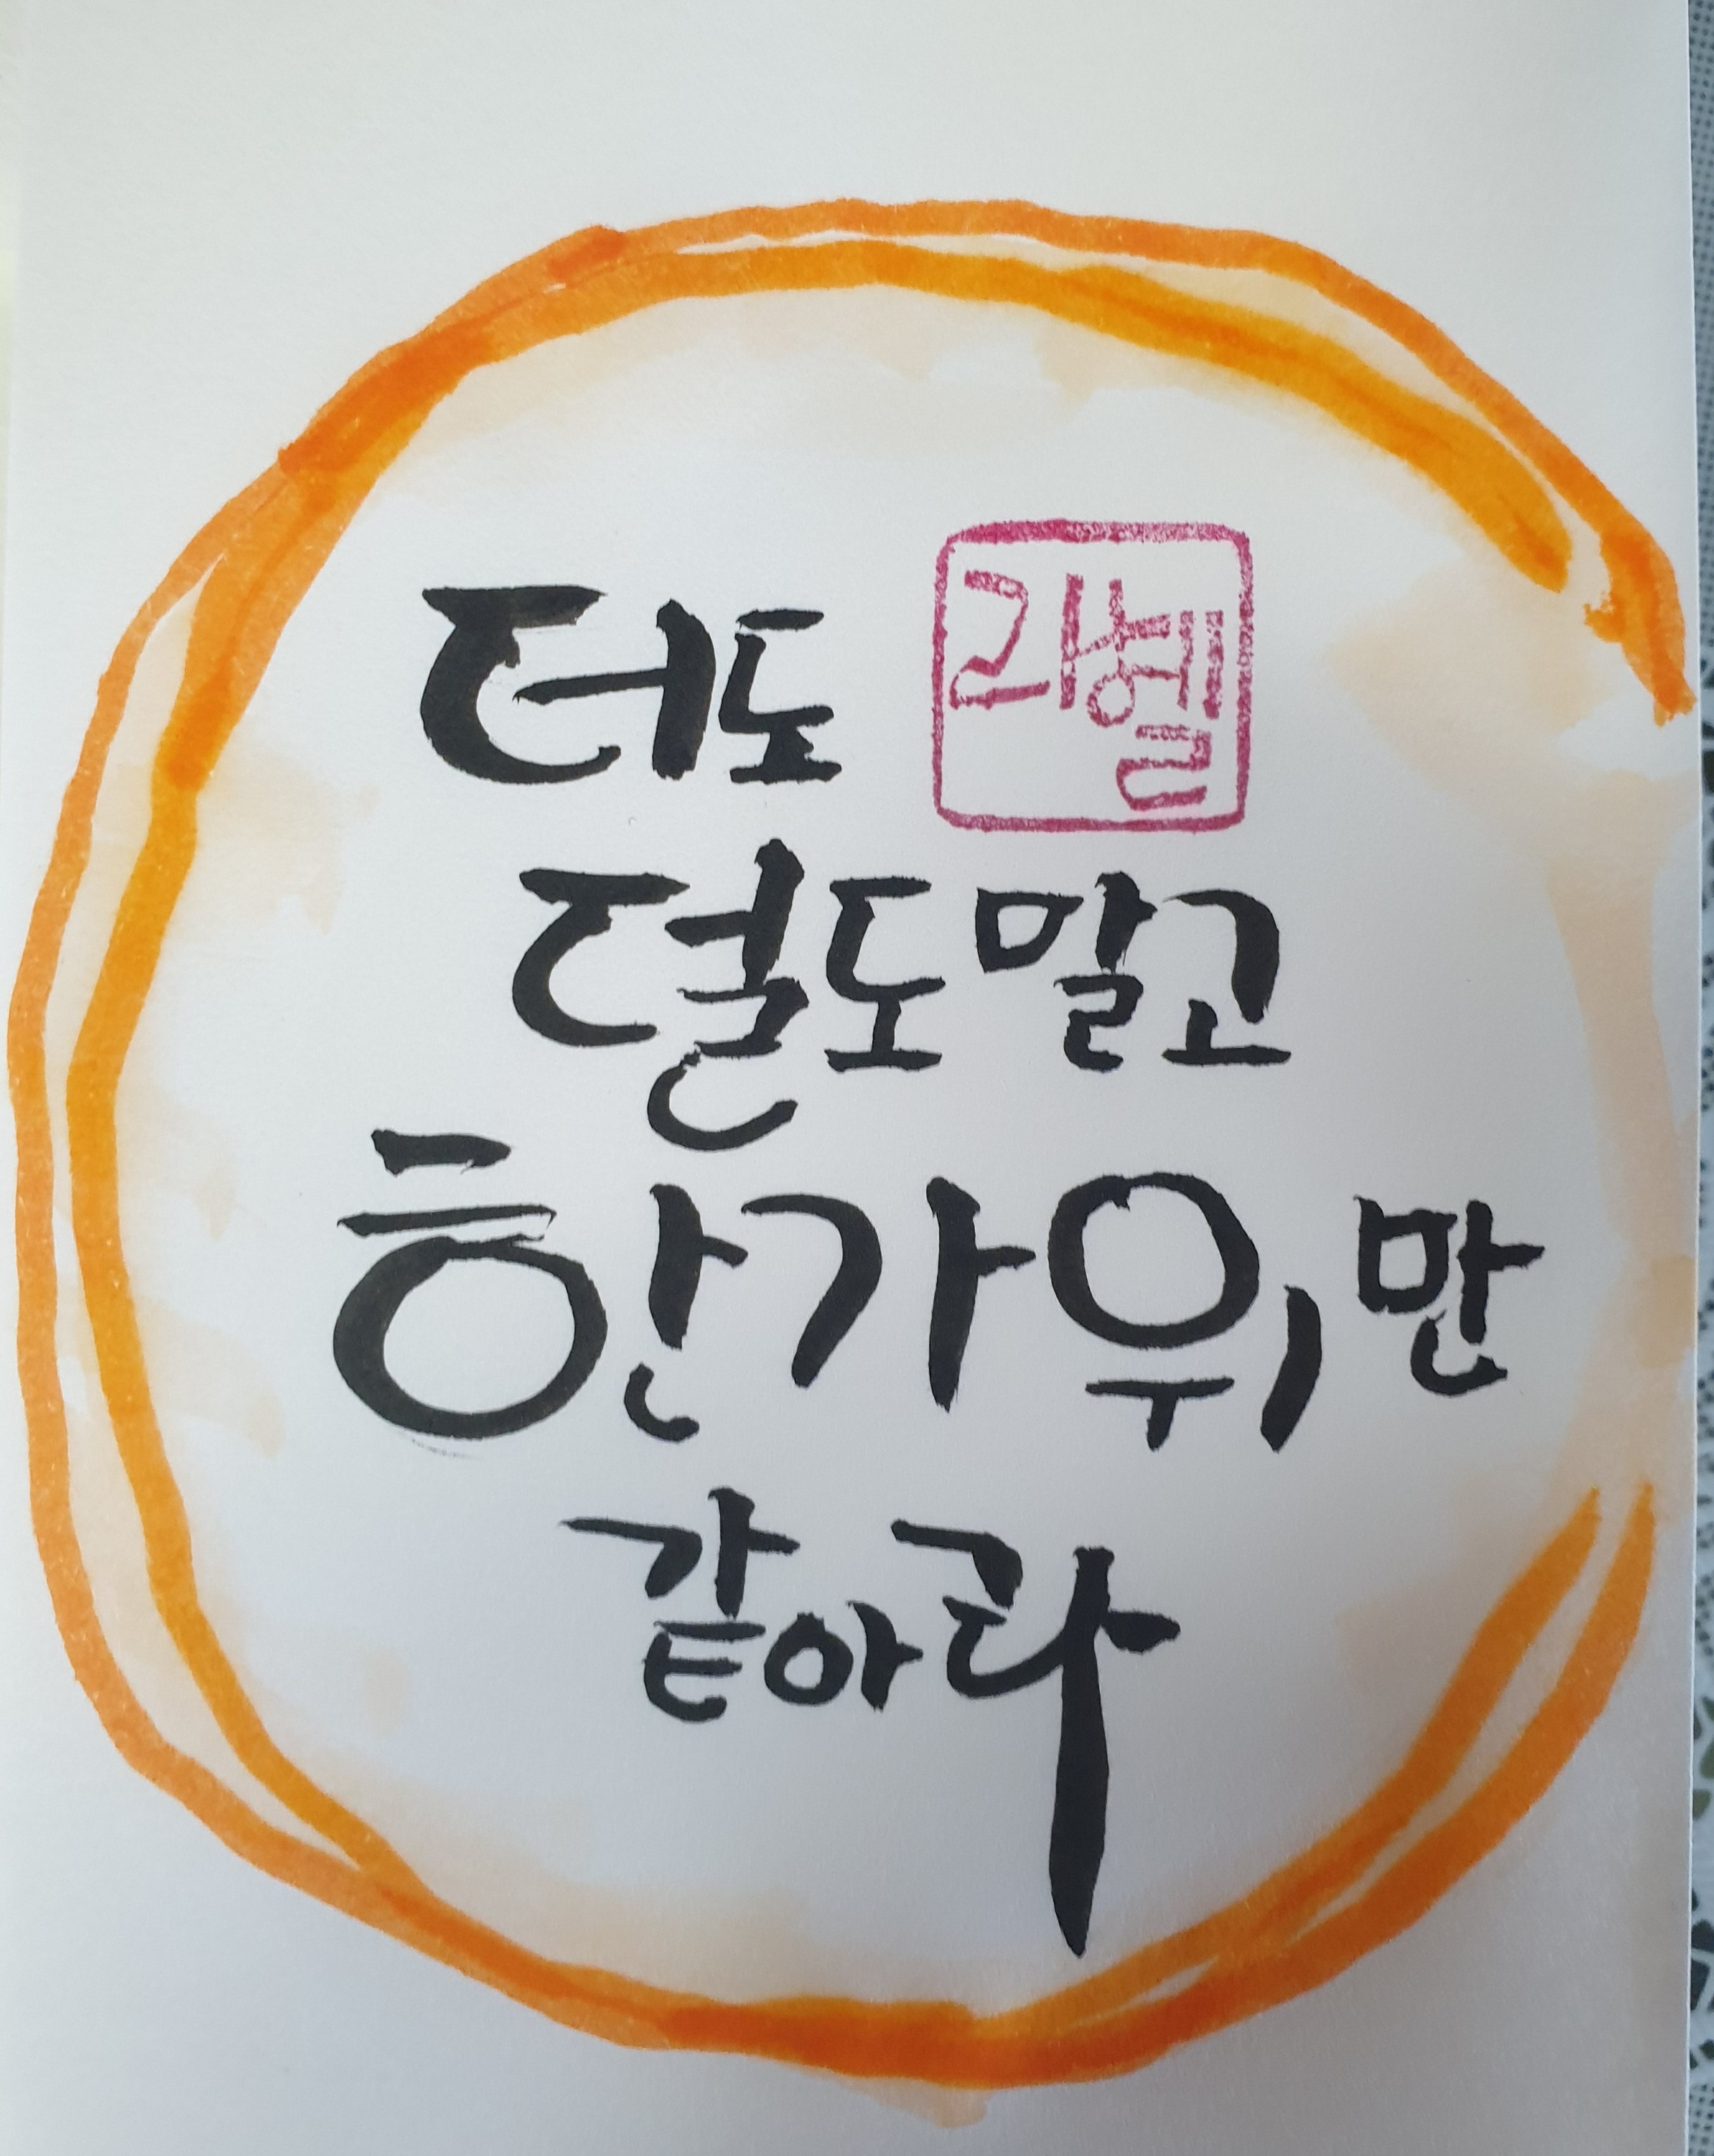 더도
라헬
덜도말고
한가위만
같아라